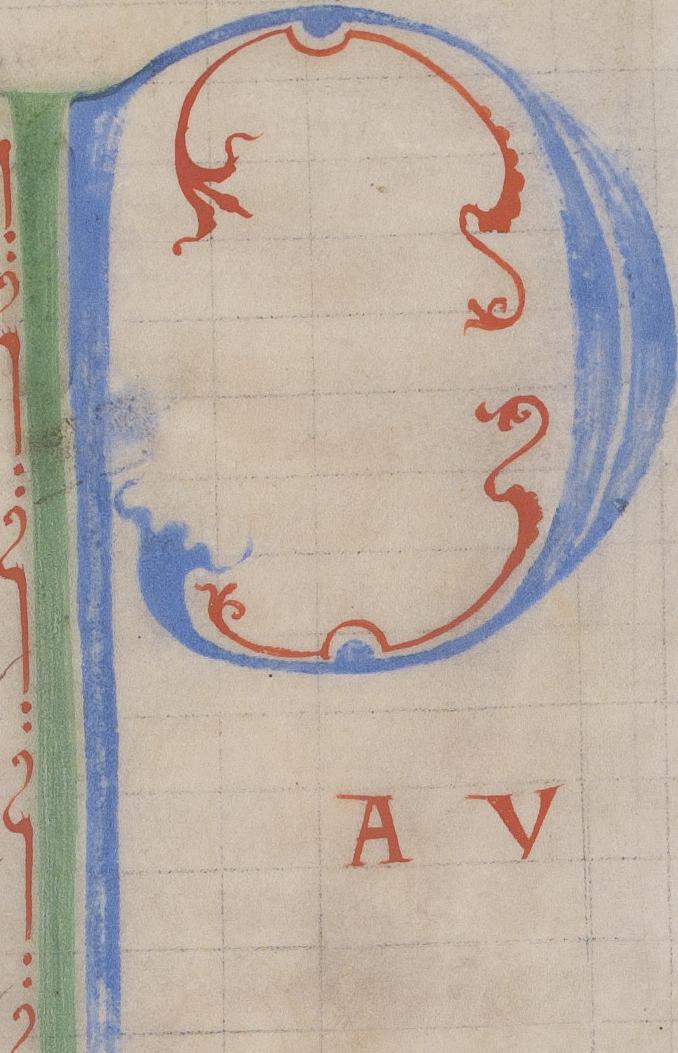 P
A V